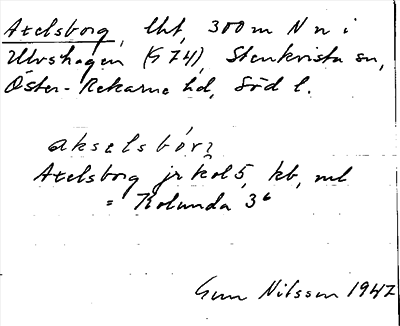 Axelsborg, lht, 300 m N n i
Ulvshagen (S 74), Stenkvista sn,
Öster-Rekarne hd, Söd l.
akselsbórj
Axelsborg jr kol 5, kb, ml
= Kolunda 3⁶
Gun Nilsson 1947